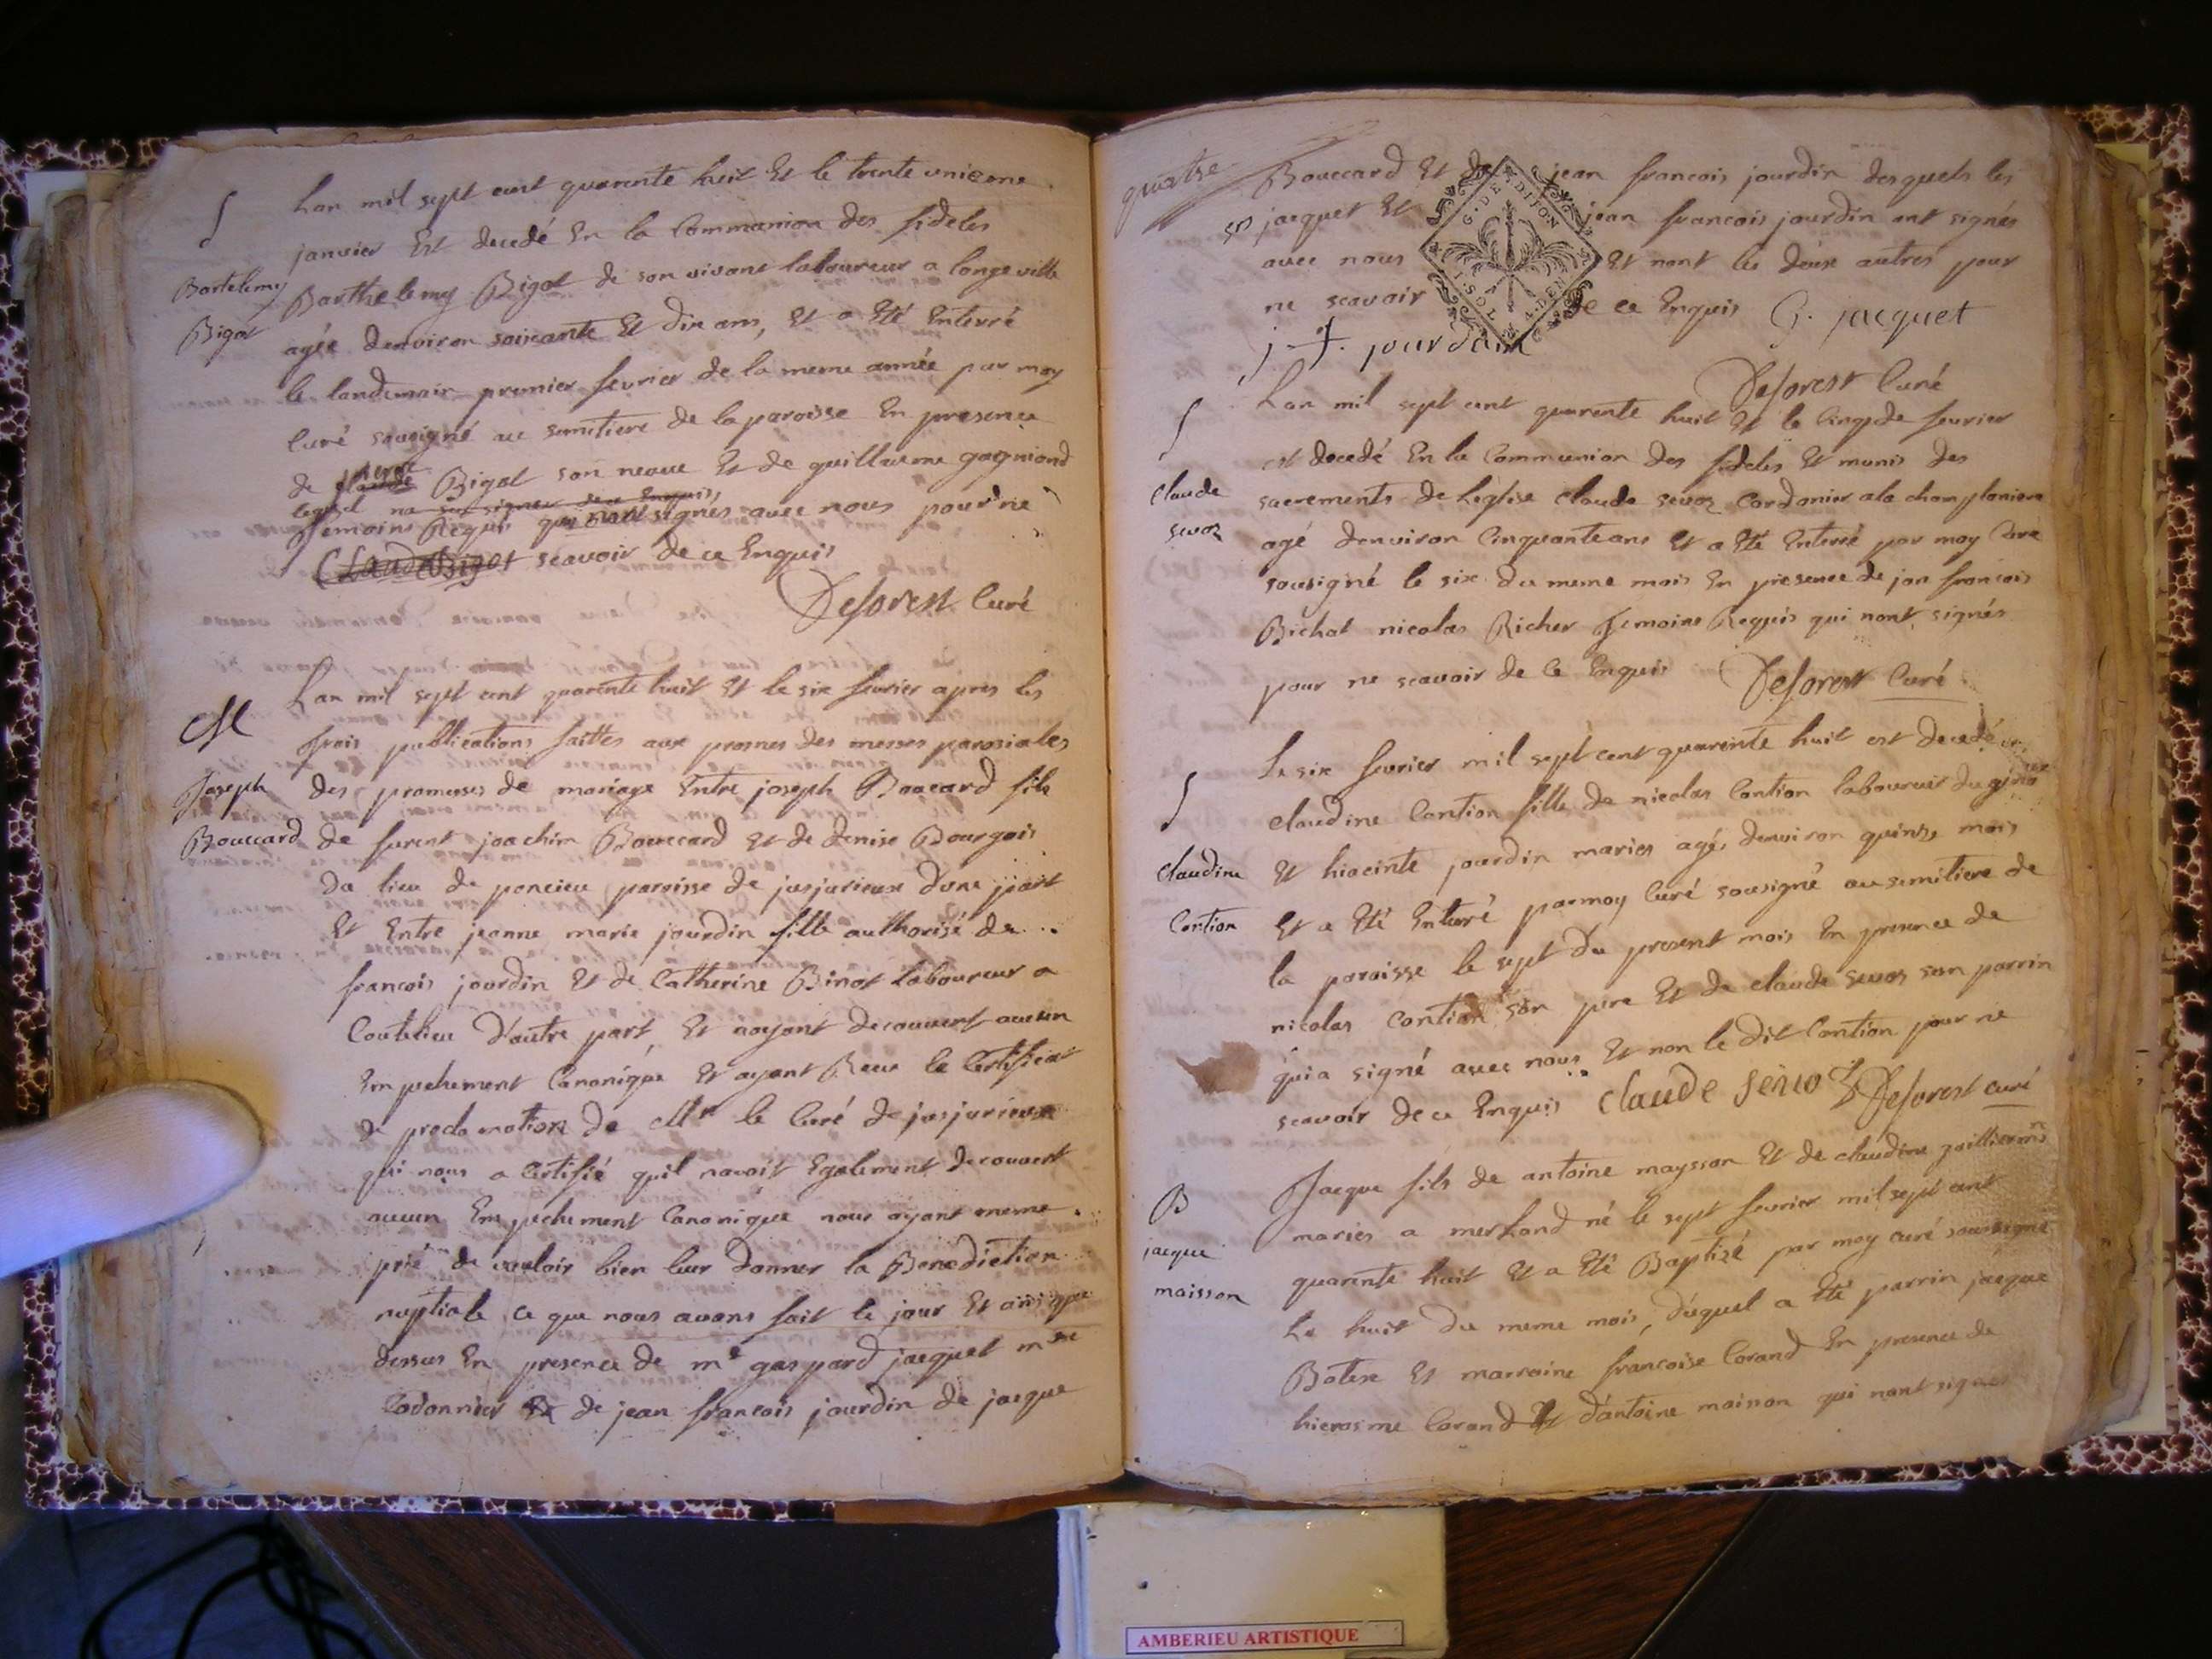 S
Lan mil sept cent quarente huit Et le trente unieme
janvier Est decedé En la Communion des fideles
Bartelemy
Bigot
Barthelemy Bigot de son vivant laboureur a longeville
agée denviron soixante Et dix ans, Et a Eté Enterré
le landemain premier fevrier de la meme année par moy
Curé sousigné au semitiere de la paroisse En presence
de Claude Bigot son neveu Et de guillaume gagniond
lequel na sceu signer de ce Enquis
Temoins Requis qui nont signés avec nous pour ne
Claude Bigot scavoir de ce Enquis
Deforest Curé
M
Lan mil sept cent quarente huit Et le six fevrier apres les
trois publications faittes aux prones des messes parosiales
Joseph
Bouccard
des promesses de mariage Entre joseph Bouccard fils
de furent joachim Bouccard Et de denise Bourgois
du lieu de poncieu paroisse de jusjurieux dune part
Et Entre jeanne marie jourdin fille authorisé de
francois jourdin Et de Catherine Binot laboureur a
Coutelieu D'autre part, Et nayant decouvert aucun
Empechement Canonique Et ayant Receu le Certificat
de proclamation de Mr le Curé de jusjurieux
qui nous a Certifié quil navoit Egalement decouvert
aucun Empechement Canonique nous ayant meme
prié de vouloir bien leur donner la Benediction
nuptiale ce que nous avons fait le jour Et an que
dessus En presence de me gaspard jacquet mtre
Cordonnier Et de jean francois jourdin de jacque
quatre
Bouccard Et de jean francois jourdin desquels les
jacquet Et jean francois jourdin ont signés
avec nous Et nont les deux autres pour
ne scavoir de ce Enquis G. jacquet
j. f. jourdain
G. DE DIJON
Deforest Curé
S
Lan mil sept cent quarente huit Et le Cinq de fevrier
est decedé En la Communion des fideles Et munis des
Claude
sevoz
sacrements de Leglise Claude sevoz Cordonier a la championiere
agé denviron Cinquante ans Et a Eté Enterré par moy Curé
sousigné le six du meme mois En presence de jan francois
Bichat nicolas Richer Temoins Requis qui nont signés
pour ne scavoir de Ce Enquis Deforest Curé
S
Le six fevrier mil sept cent quarente huit est decedé
claudine Contion fille de nicolas Contion laboureur du
Claudine
Contion
Et hiacinte jourdin maries agés denviron quinze mois
Et a Eté Enterré par moy Curé sousigné au semitiere de
la paroisse le sept du present mois En presence de
nicolas contion son pere Et de claude sevos son parrin
qui a signé avec nous Et non le dit Contion pour ne
scavoir de ce Enquis claude sevoz Deforest curé
B
jacque
maisson
Jacque fils de antoine maysson Et de claudine
maries a merland né le sept fevrier mil sept cent
quarente huit Et a Eté Baptizé par moy curé soussigné
Le huit du meme mois, duquel a Eté parrin jacque
Botex Et marraine francoise Corand En presence de
hierosme Corand Et d'antoine maison qui nont signé
AMBERIEU ARTISTIQUE